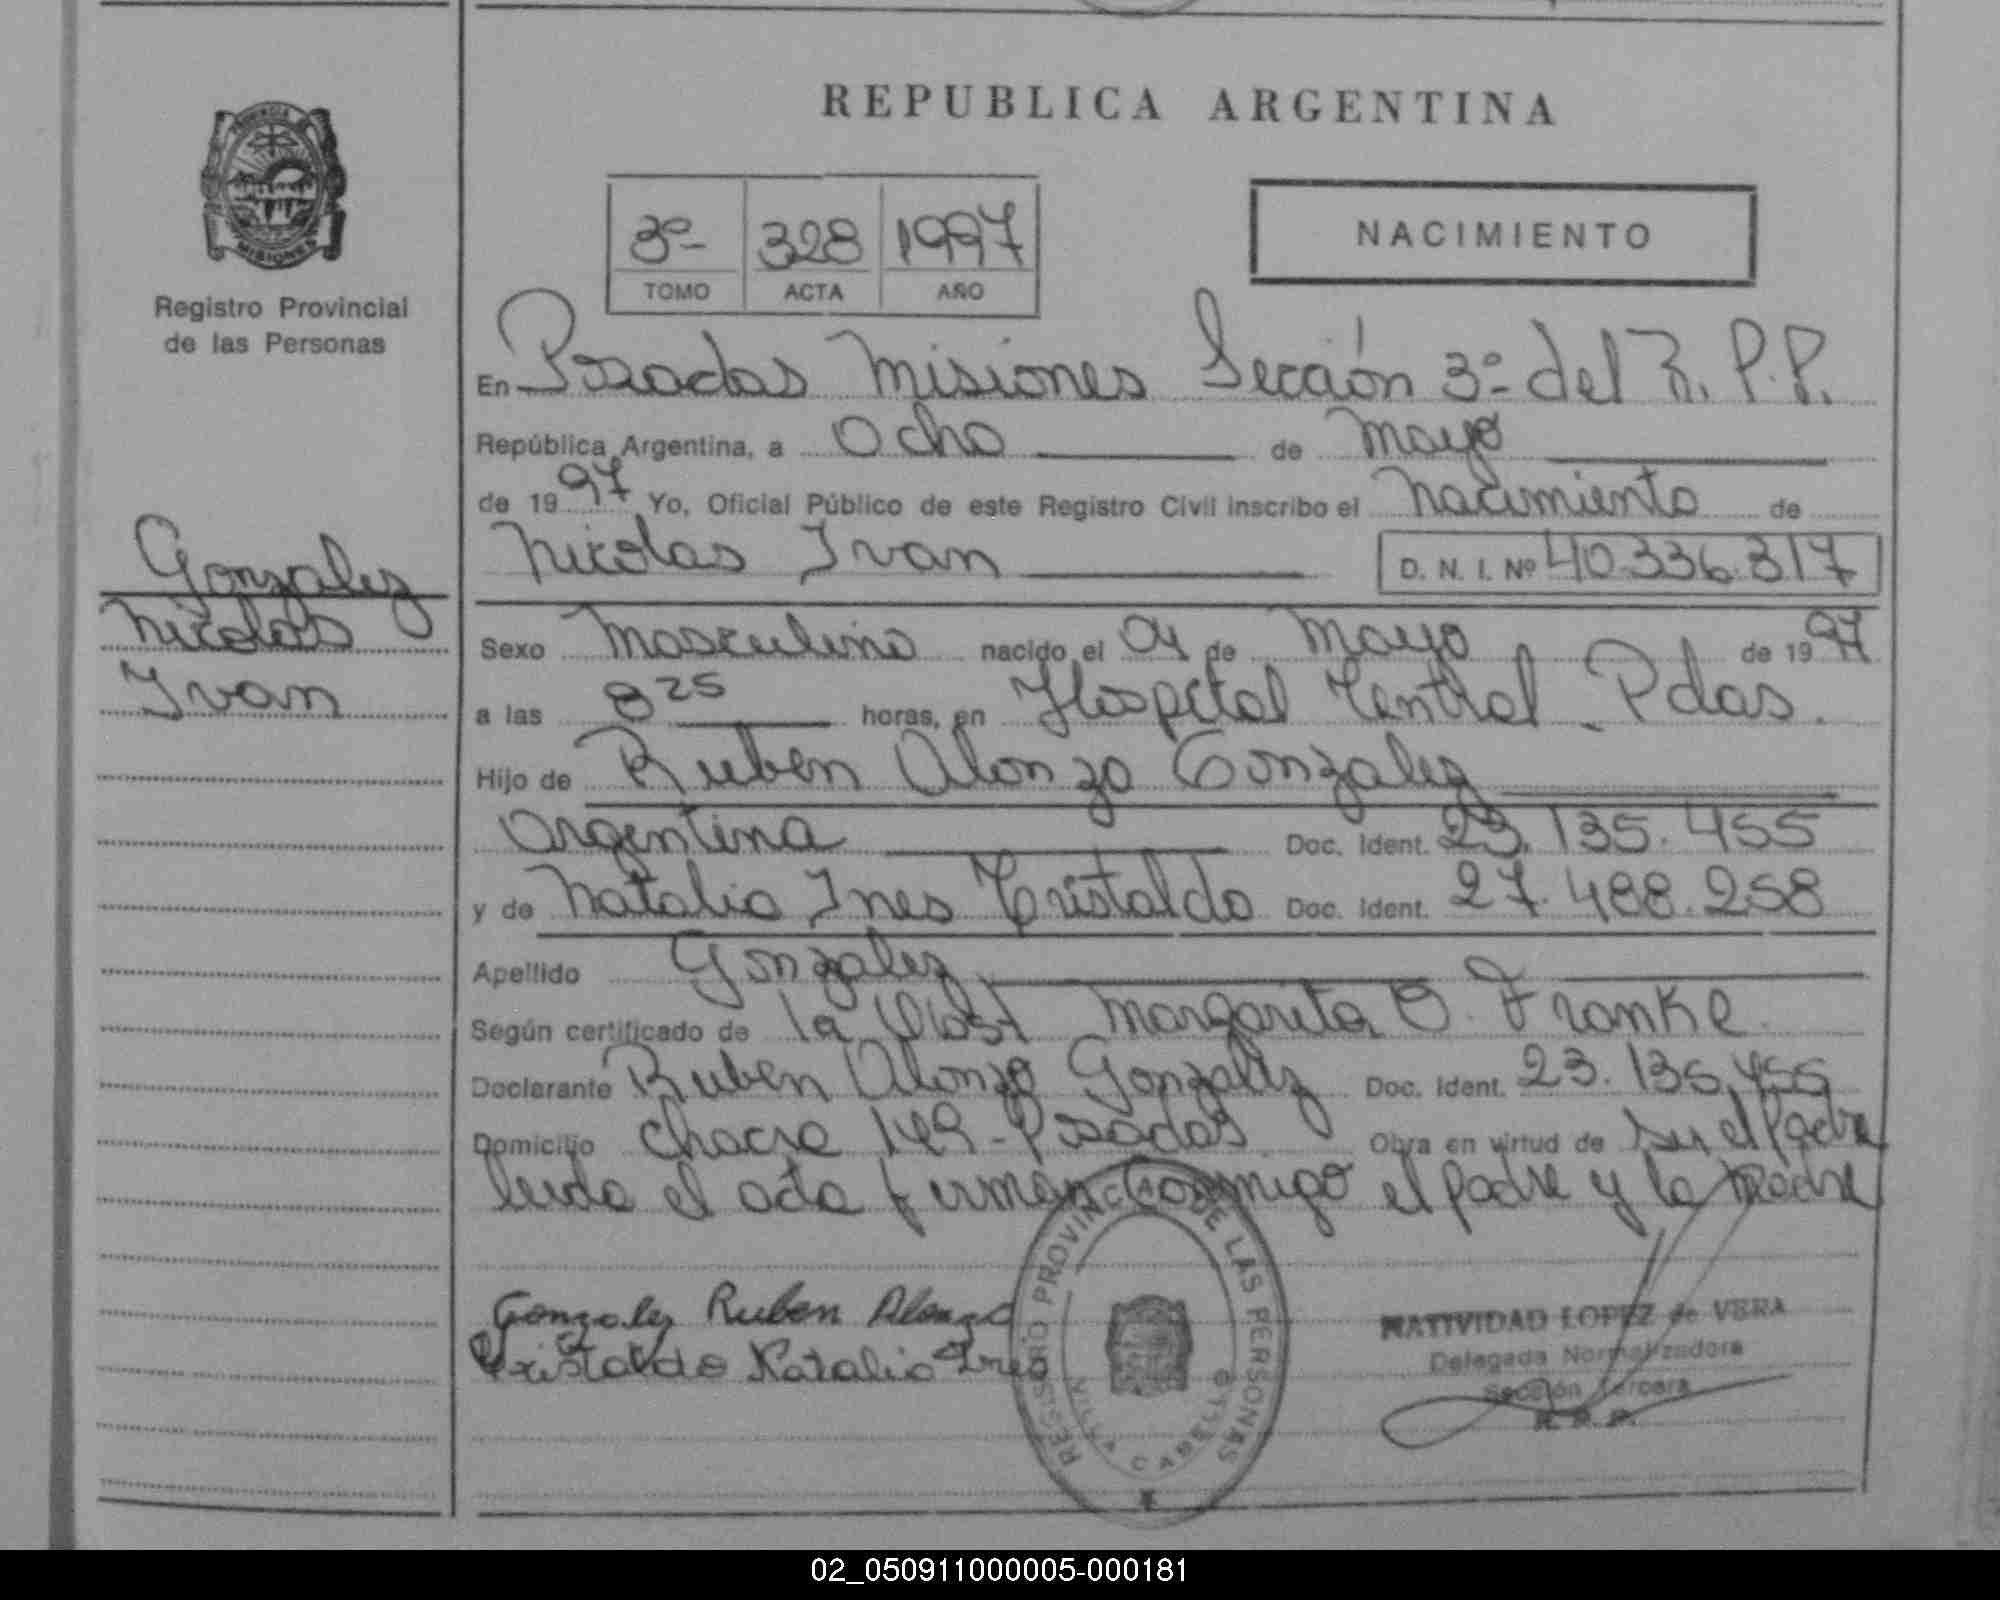 REPUBLICA ARGENTINA
PROVINCIA
MISIONES
Registro Provincial
de las Personas
3º 328 1997
TOMO ACTA AÑO
NACIMIENTO
En Posadas Misiones Sección 3º del R. P. P.
República Argentina, a Ocho de Mayo
de 1997 Yo, Oficial Público de este Registro Civil inscribo el Nacimiento de
Nicolas Ivan D. N. I. Nº 40.336.317
Gonzalez
Nicolas
Ivan
Sexo Masculino nacido el 04 de Mayo de 1997
a las 8 25 horas, en Hospital Central Pdas.
Hijo de Ruben Alonzo Gonzalez
Argentina Doc. Ident. 23.135.455
y de Natalia Ines Cristaldo Doc. Ident. 27.488.258
Apellido Gonzalez
Según certificado de la Obst Margarita O. Franke
Declarante Ruben Alonzo Gonzalez Doc. Ident. 23.135.455
Domicilio Chacra 149 - Posadas Obra en virtud de ser el Padre
leida el acta firman Conmigo el padre y la Madre
Gonzalez Ruben Alonzo
Cristaldo Natalia Ines
REGISTRO PROVINCIAL DE LAS PERSONAS
VILLA CABELLO
NATIVIDAD LOPEZ de VERA
Delegada Normalizadora
Sección Tercera
R. P. P.
02_050911000005-000181